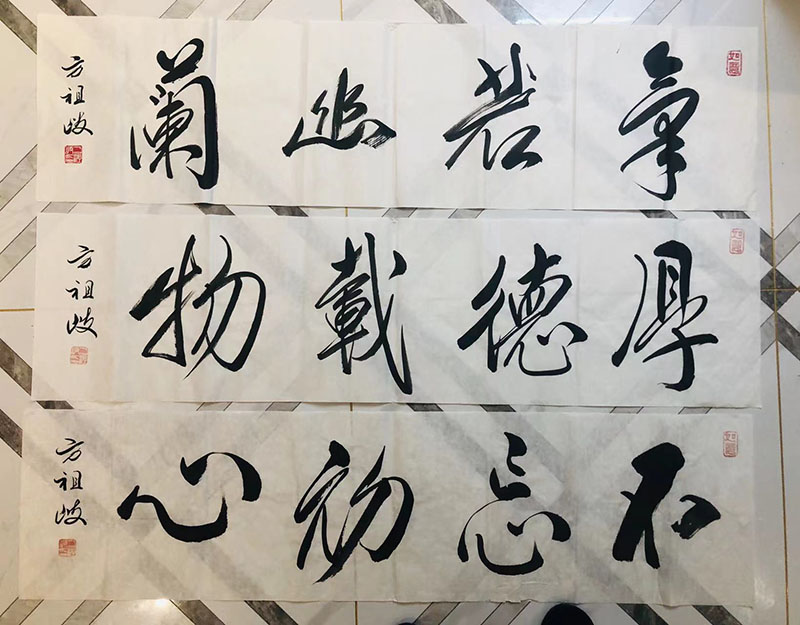 氣若幽蘭
方祖岐
厚德載物
方祖岐
不忘初心
方祖岐